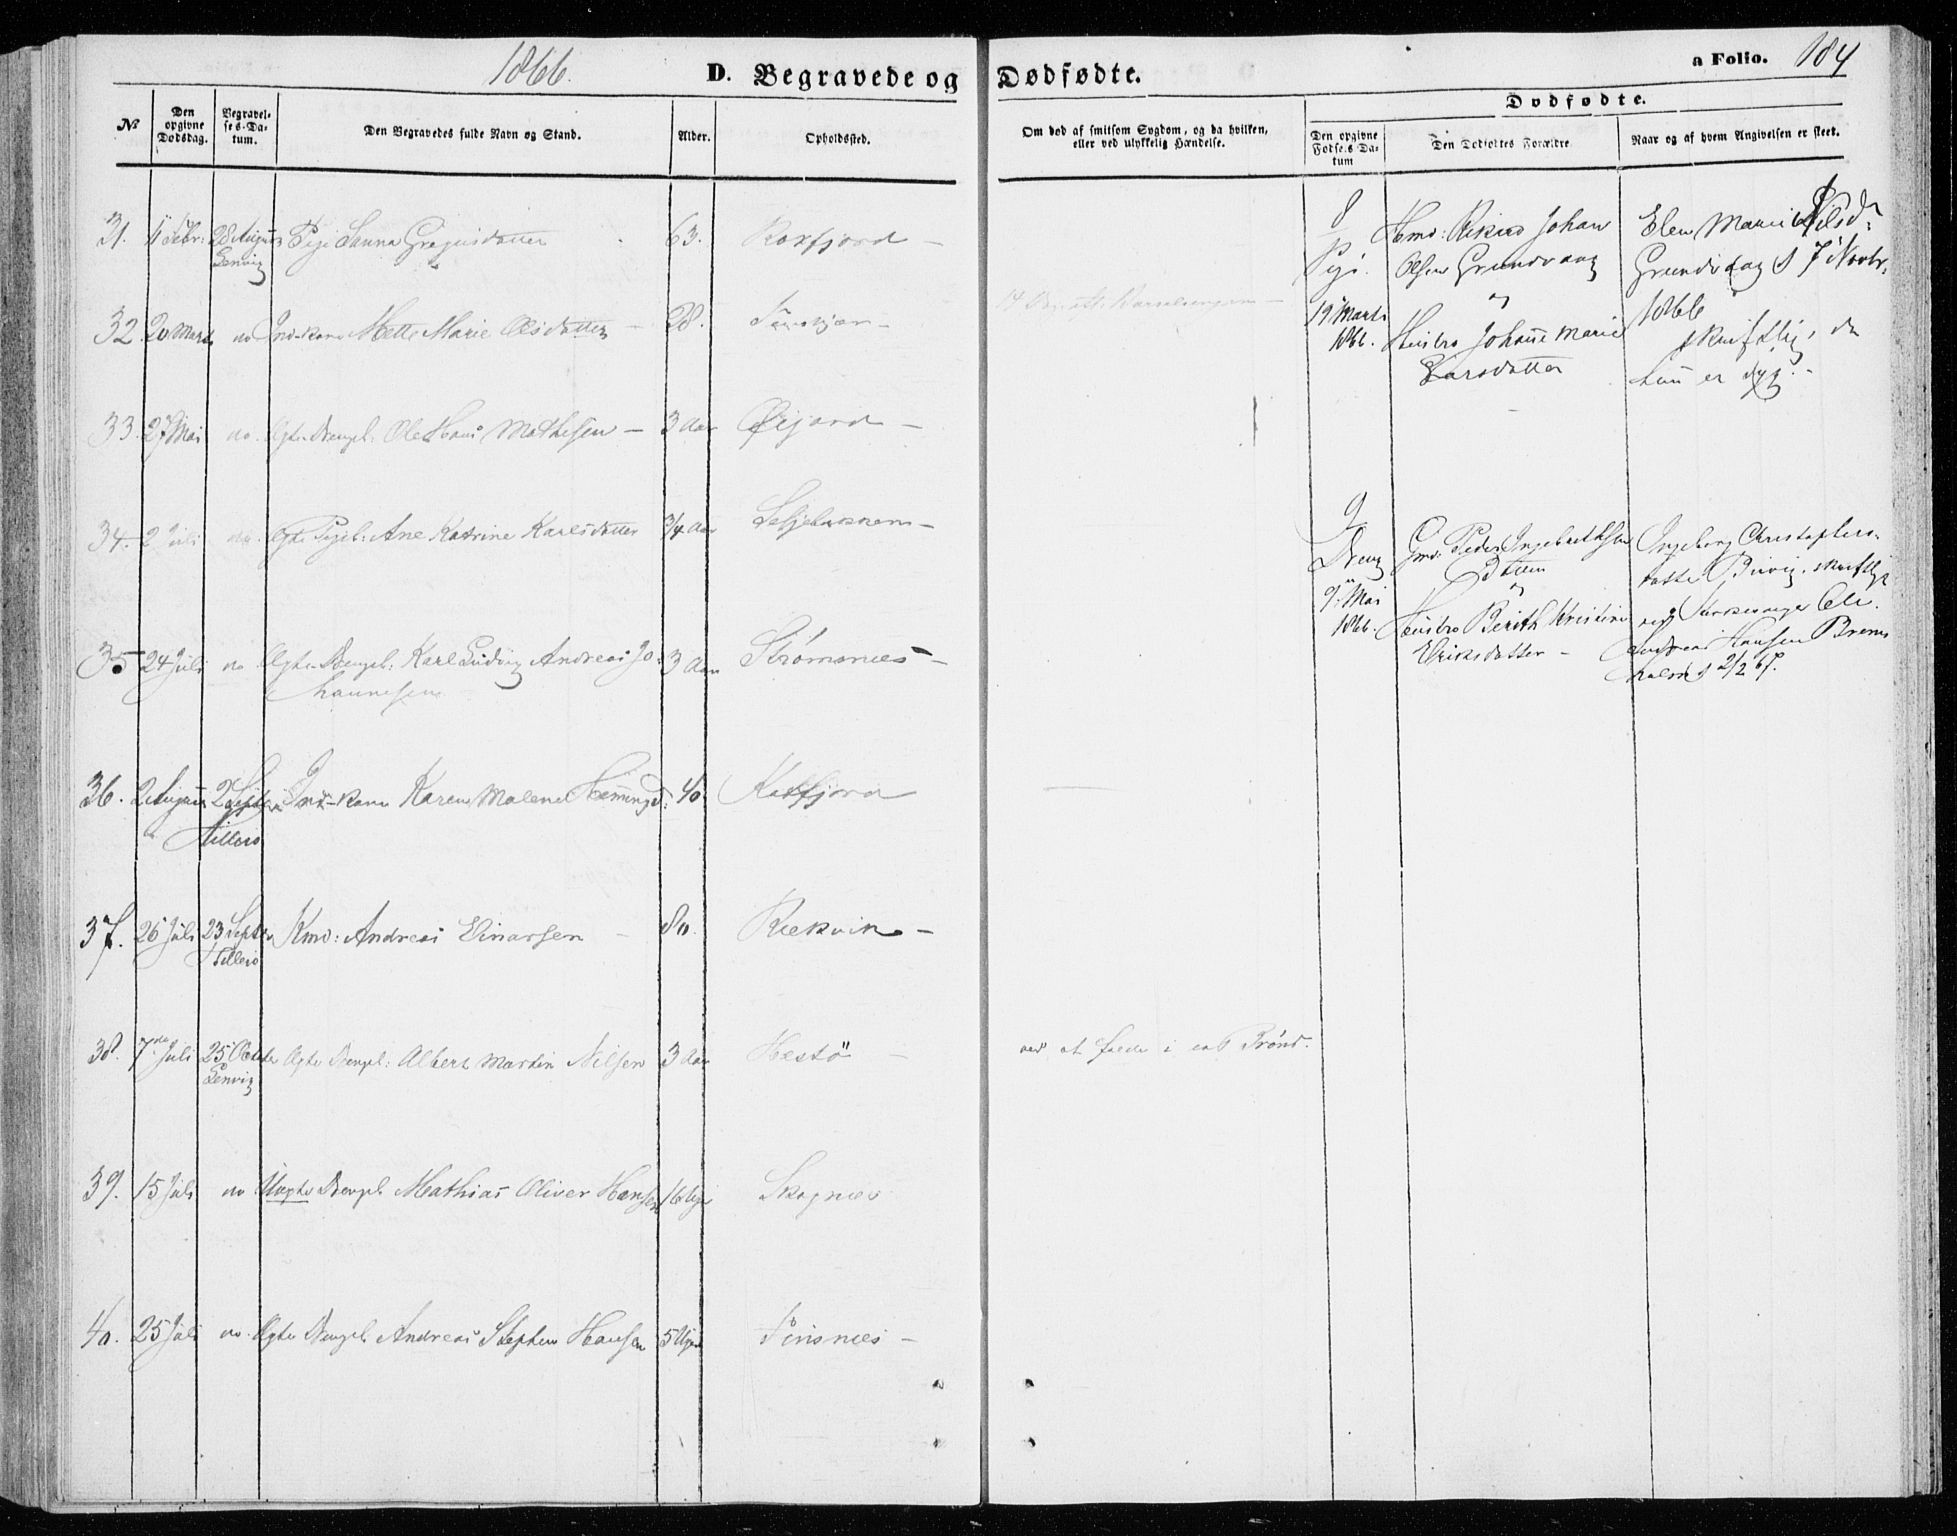 1866.
D. Begravede og Dødfødte.
a Folio. 184
№
Den opgivne Dødsdag.
Begravelses-Datum.
Den Begravedes fulde Navn og Stand.
Alder.
Opholdssted.
Om død af smitsom Sygdom, og da hvilken, eller ved ulykkelig Hændelse.
Dødfødte.
Den opgivne Fødsels Datum
Den Dødfødtes Forældre
Naar og af hvem Angivelsen er skeet.
31. 11 Febr: 28 August Pige Sanna Gregusdatter 63. Roxfjord –
Lenvig
32. 20 Marts do Ind-kone Mette Marie Olsdatter – 28.
33. 27 Mai do. Ægte Drengeb: Ole Hans Mathesen – 3 Aar Øijord –
34. 2 Juli do. Ægte Pigeb: Ane Katrine Karlsdatter 3/4 Aar
35 24 Juli do Ægte Drengeb: Karl Ludvig Andreas Jo- 3 Aar Strømsnes –
hannesen
36. 2 August 2 Septbr Ind-kone Karen Malene Hemmingsd: 40. Kattfjord
Hillesø
37. 26 Juli 23 Septbr Kmd: Andreas Einarsen – 80. Rekvik –
Hillesø
38. 7de Juli 25 Octbr Ægte Drengeb: Albert Martin Nilsen 3 Aar Hestö – ved at falde i en Brønd.
Lenvig
39. 15 Juli do Uægte Drengeb. Mathias Oliver Hansen 16 Uger Skognes
40. 25 Juli do. Ægte Drengeb. Andreas Stephen Hansen 5 Uger Finsnes –
8
Pige.
19 Marts
1866.
Hmd: Rikard Johan
Olsen Grundvaag
og
Hustro Johanne Marie
Larsdatter
Elen Marie Nilsd:
Grundvaag d 7 Novbr.
1866
skriftlig, da
hun er syg. –
9
Dreng
9 Mai
1866.
Gmd: Peder Ingebrethsen
og
Hustro Berith Kristine
Eriksdatter –
Ingeborg Christophers-
datter skriftlig
ved Kirkesanger Ole
Andreas Hansen
d 2/2 67.